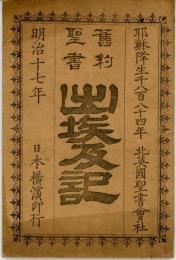 耶穌降生千八百八十四年　北英國聖書會社
舊約
聖書
出埃及記
明治十七年　日本橫濱印行